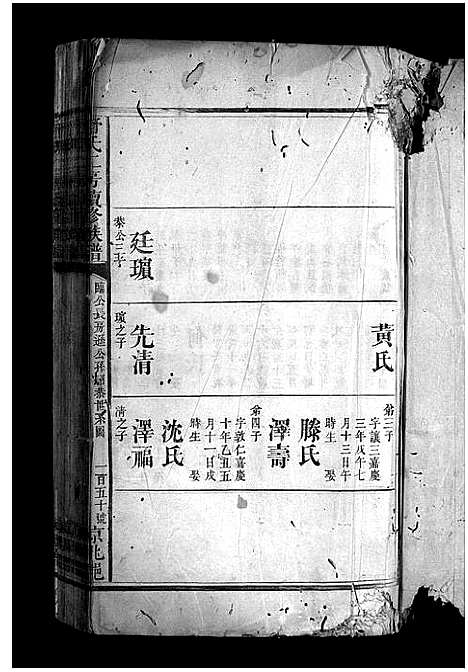 黃氏
弟三子
字讓三嘉慶
三年戊午七
月十三日午
時生 娶
滕氏
澤壽
弟四子
字敦仁嘉慶
十年乙丑五
月十一日戌
時生 娶
沈氏
廷瓆
恭公三子
先清
瓆之子
澤福
清之子
氏二房續修族譜
臨公長房遜公孫 恭世系圖
一百五十號
京兆邑